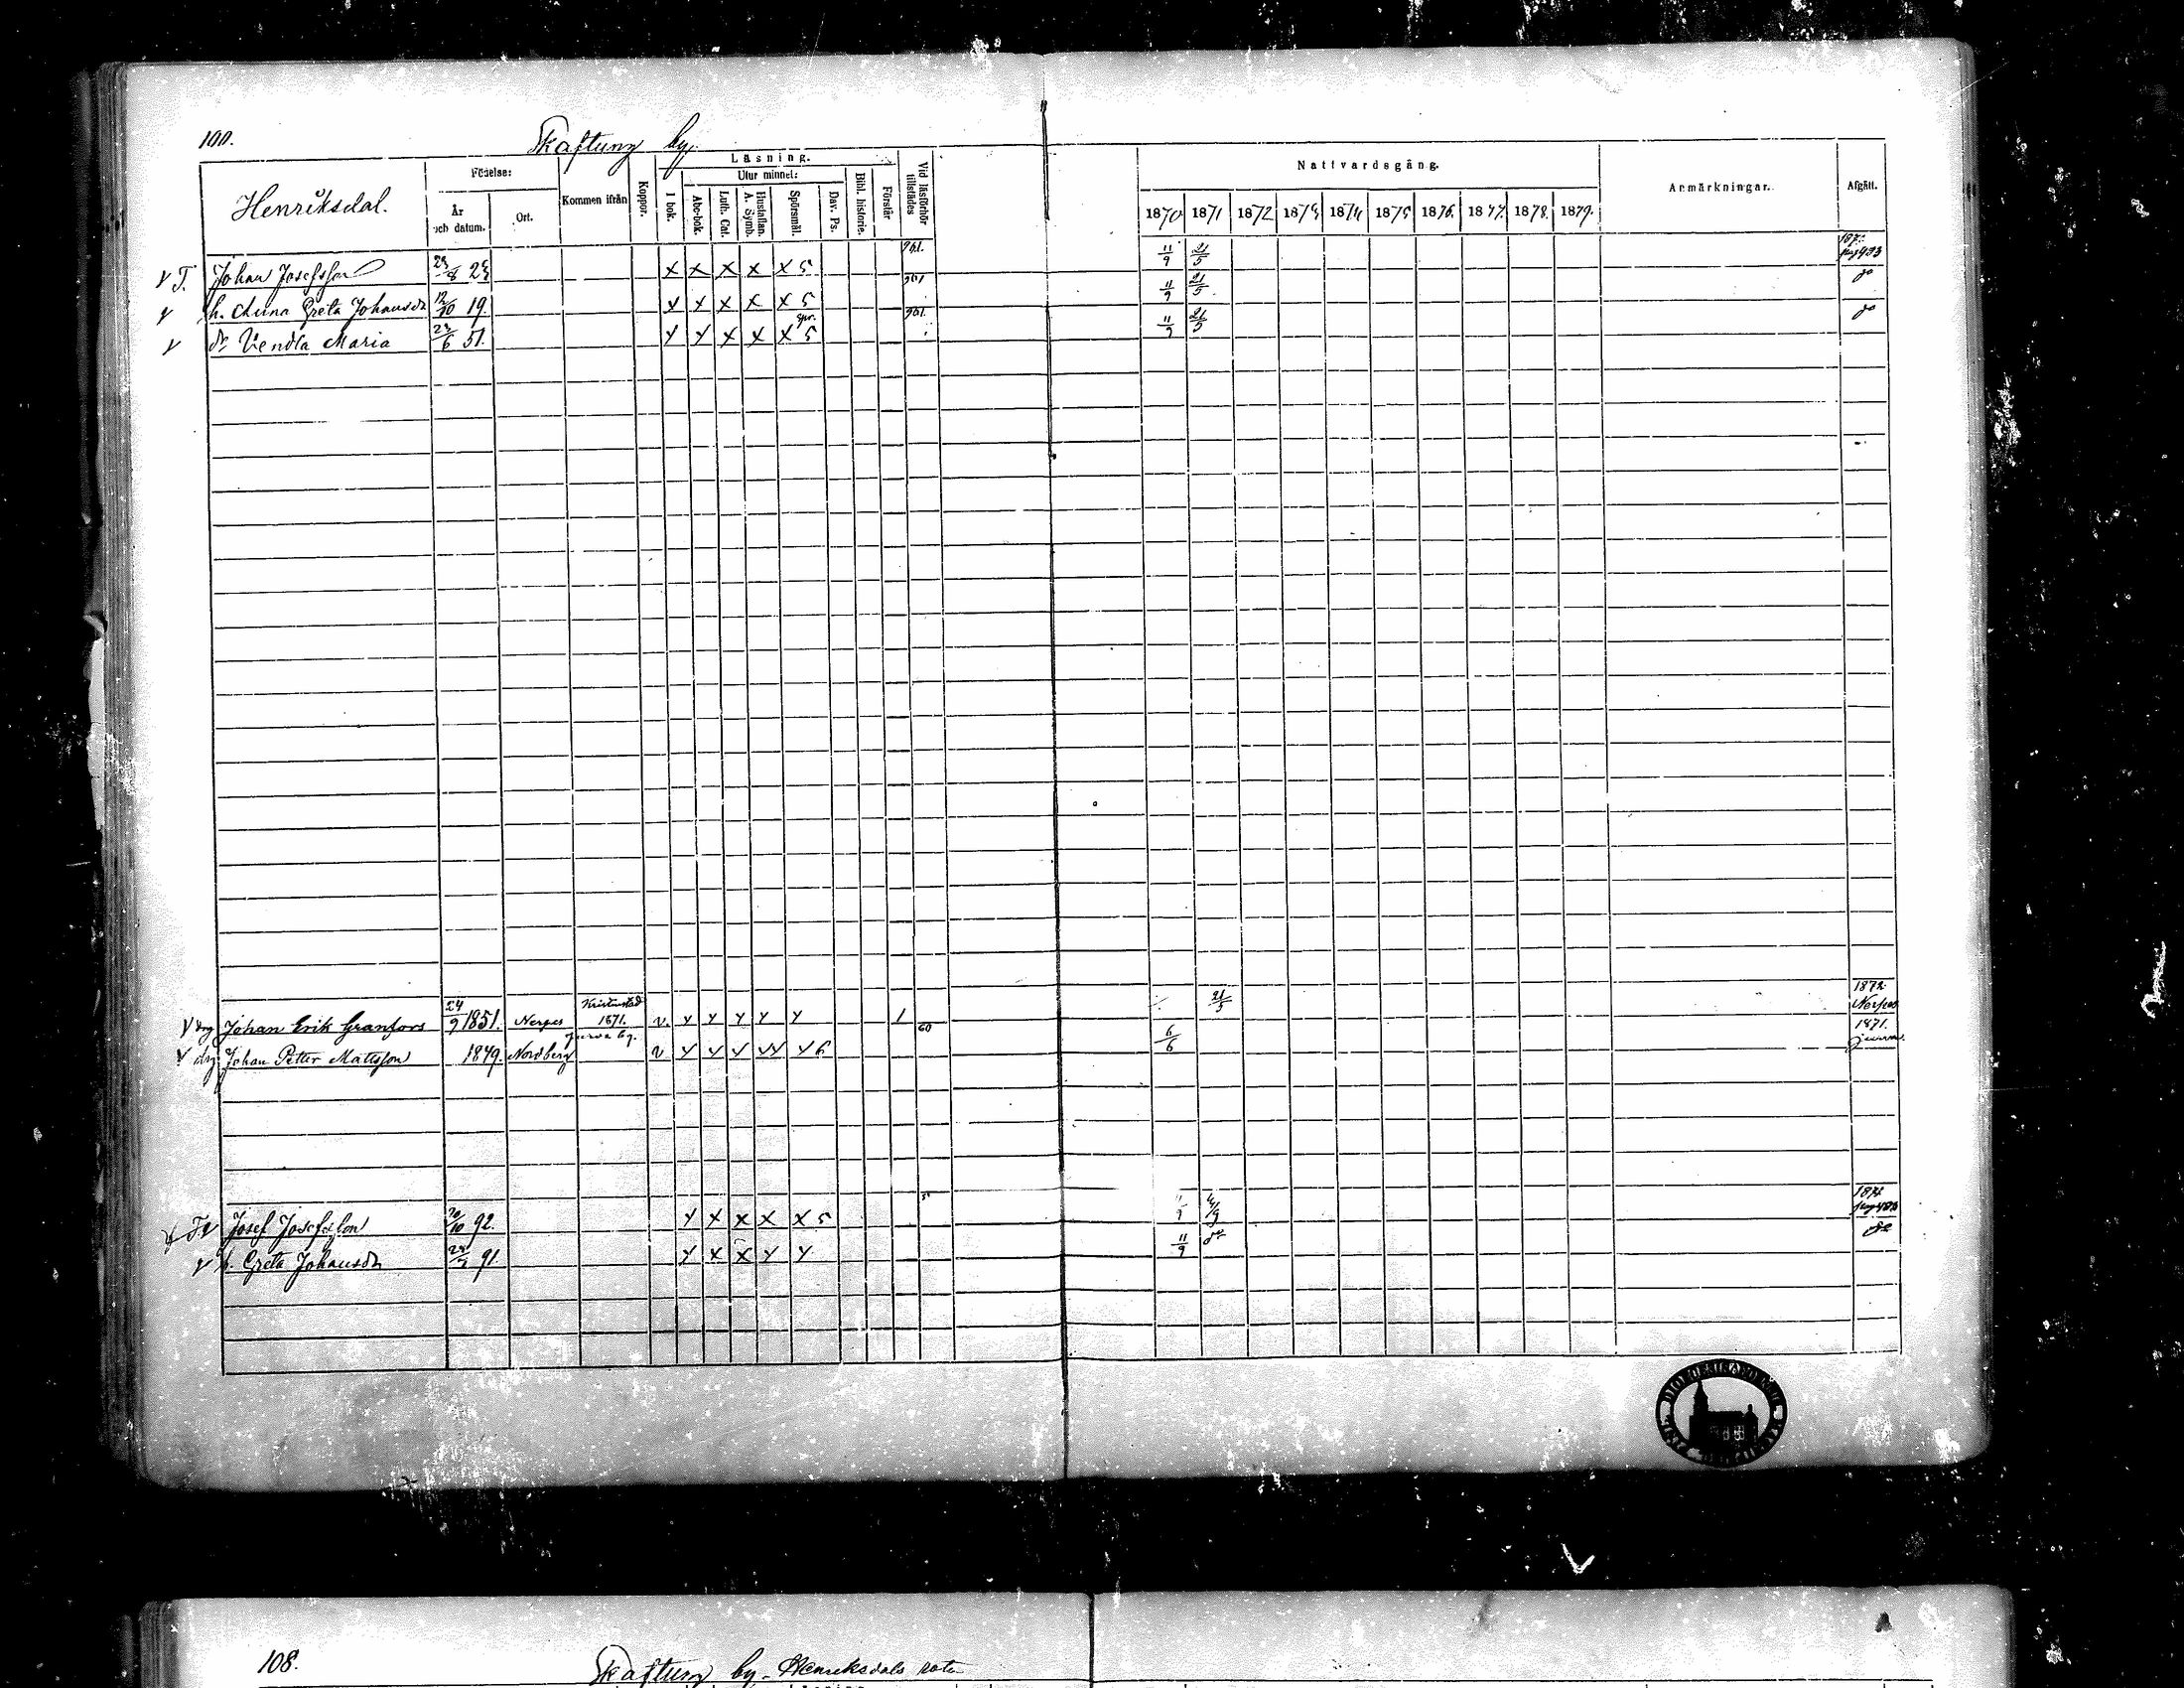 100.
Skaftung by.
Henriksdal.
Födelse:
År och datum.
Ort.
Kommen ifrån
Koppor.
Läsning.
I bok.
Utur minnet:
Abc-bok.
Luth. Cat.
Hustaflan. A. Symb.
Spörsmål.
Dav. Ps.
Bibl. historie.
Förstår
Vid läsförhör tillstädes
Nattvardsgång.
1870 1871 1872 1873 1874 1875 1876. 1877. 1878. 1879.
Anmärkningar.
Afgått.
v T. Johan Josefsson 8 x x x x x 5 11/9 21/5
v h. Anna Greta Johansdr 12/10 19. x x x x x 5 11/9 21/5 do
v dr Vendla Maria 6 51. x x x x x 5 11/9 21/5 do
v drg Johan Erik Granfors 24/9 1851. Nerpes Kristinestad 1871. v. x x x x x 1 21/5 1872 Nerpes
v drg Johan Petter Mattsson 1849. Nordberg v x x x x x 6 60 6/6 1871.
Josef Josefsson 10 92. x x x x x 5 9
v h. Greta Johansdr 91. x x x x x 11/9 do do
108.
Skaftung by. Henriksdals rote